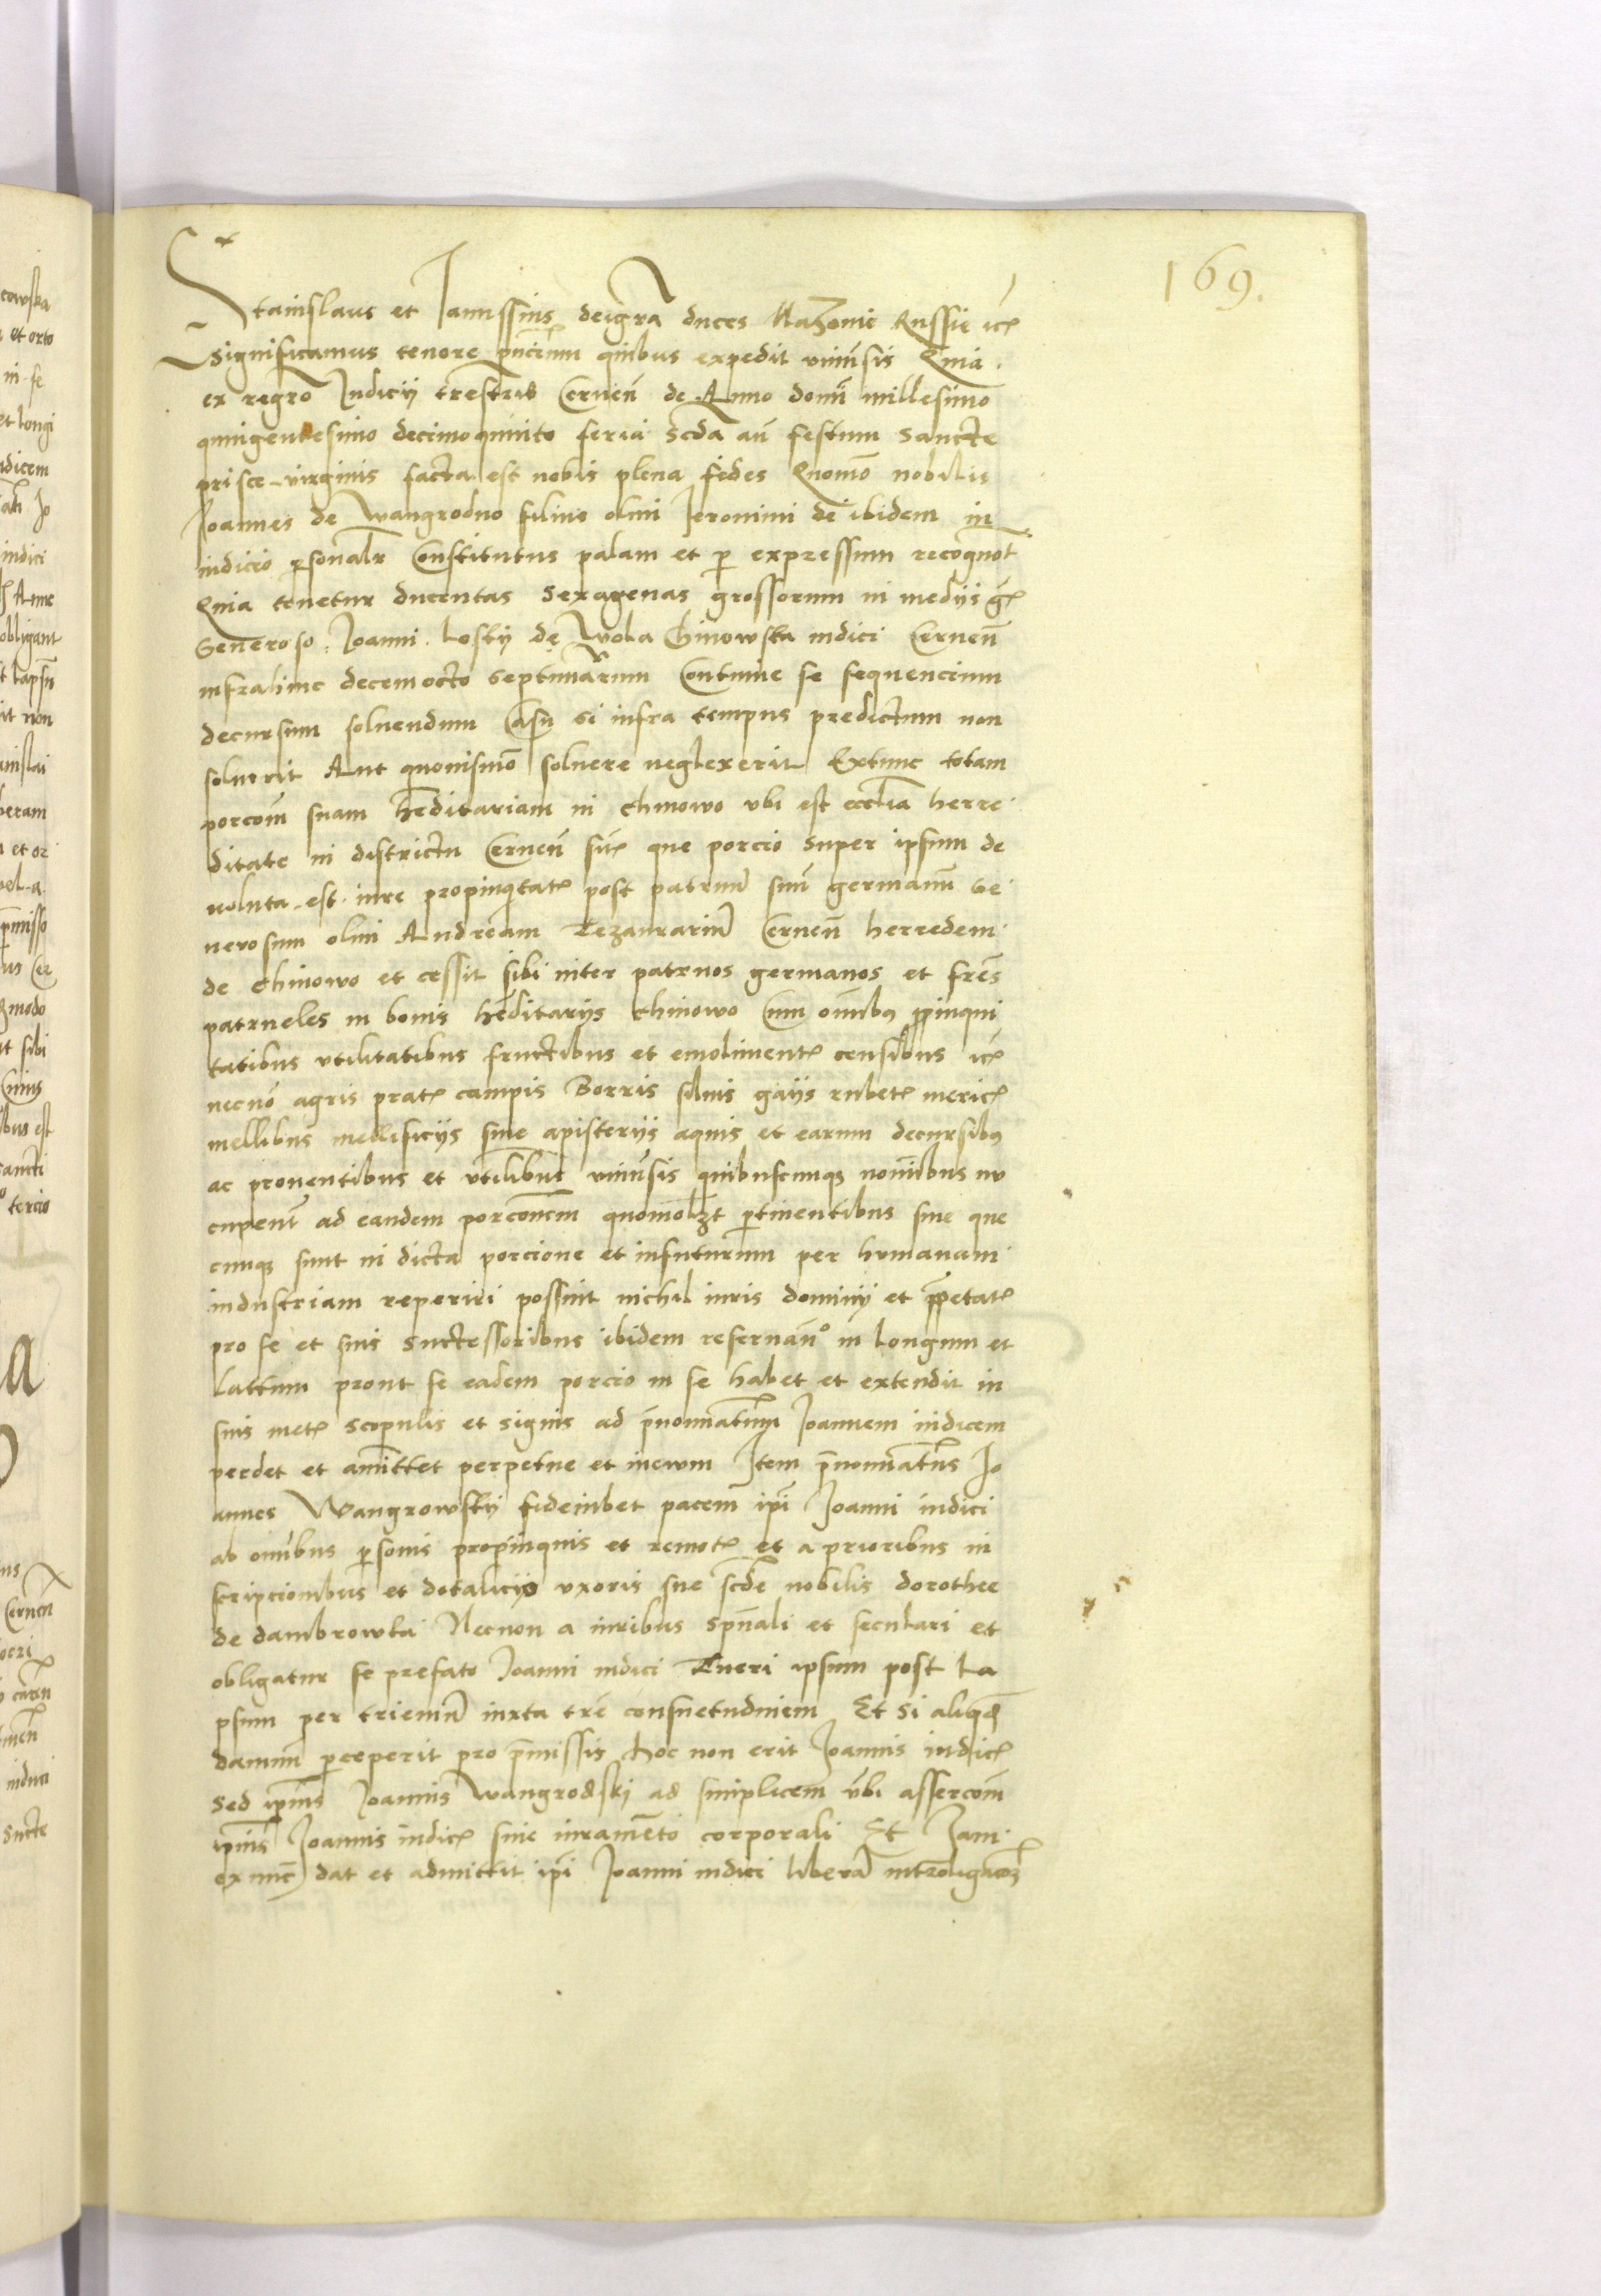 169.
Stanislaus et Janussius dei gra duces Mazouie Russie etc
Significamus tenore pncium quibus expedit vniusis Quia
ex regro Judicij trestris Cernen de Anno domi millesimo
quingentesimo decimoquinto feria scda an festum Sancte
prisce virginis facta est nobis plena fides Quomo nobilis
Joannes de Wangrodno filius olim Jeronimi de ibidem in
iudicio psonalr Constitutus palam et p expressum recognot
Quia tenetur ducentas Sexagenas grossorum in medijs gr
Generoso Joanni Losky de Wola Chinowska iudici Cernen
infra hinc decemocto septimarum Continue se sequencium
decursum soluendum Casu si infra tempus predictum non
soluerit Aut quouismo soluere neglexerit Extunc totam
porcom suam heditariam in Chinowo vbi est ecclia herre
ditate in districtu Cernen sit que porcio super ipsum de
uoluta est iure propinqtat post patruu suu germanu Ge
nerosum olim Andream Tezaurariu Cernen herredem
de Chinowo et cessit sibi inter patruos germanos et fres
patrueles in bonis heditarijs Chinowo Cum omibus ppinqui
tatibus vtilitatibus fructibus et emoliment censibus etc
necno agris prat campis Borris siluis gaijs rubet meric
mellibus mellificijs siue apisterijs aquis et earum decursibus
ac prouentibus et vtilibus vniusis quibuscumque nomibus nu
cupent ad eandem porconem quomolzt ptinentibus siue que
cumque sunt in dicta porcione et infuturum per humanam
industriam reperiri possint nichil iuris dominij et ppetat
pro se et suis successoribus ibidem reseruano in longum et
lattum prout se eadem porcio in se habet et extendit in
suis met scopulis et signis ad pnominatum Joannem iudicem
perdet et amittet perpetue et ineuum Item pnominatus Jo
annes Wangrowsky fideiubet pacem ipi Joanni iudici
ab omibus psonis propinquis et remot et a prioribus in
scripcionibus et dotalicijs vxoris sue scde nobilis dorothee
de dambrowka Necnon a iuribus spuali et seculari et
obligatur se prefato Joanni iudici Tueri ipsum post la
psum per trieniu iuxta tre consuetudinem Et si aliquod
damnu pceperit pro pmissis hoc non erit Joannis iudic
sed ipius Joannis Wangrodski ad simplicem vbi assercom
ipius Joannis iudic sine iuramento corporali Et Jam
ex nunc dat et admittit ipi Joanni iudici libera intromissionem